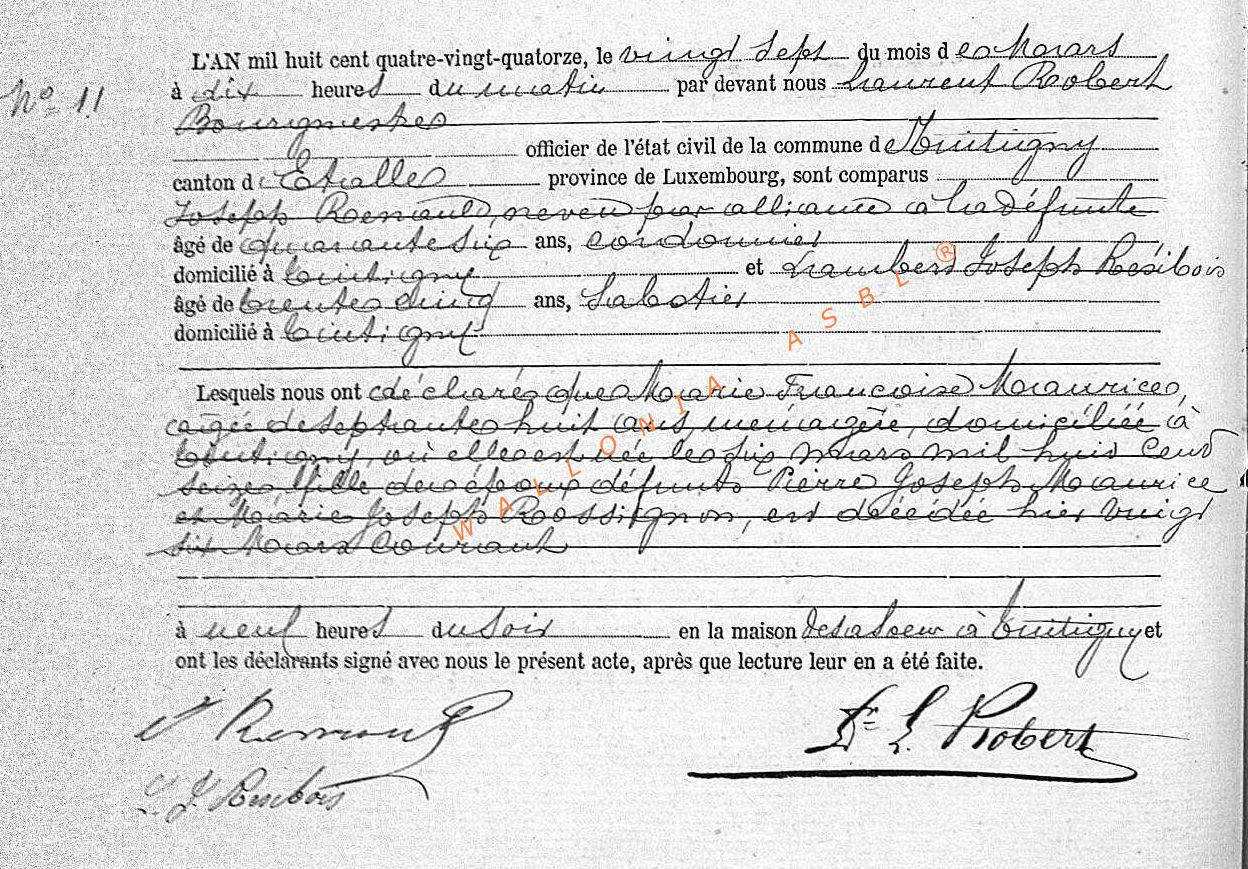 L'AN mil huit cent quatre-vingt-quatorze, le vingt sept du mois de Mars
N° 11
à dix heures du matin par devant nous Laurent Robert
Bourgmestre
officier de l'état civil de la commune de Tintigny
canton d'Etalle province de Luxembourg, sont comparus
Joseph Renauld, neveu par alliance à la défunte
âgé de quarante six ans, cordonnier
domicilié à Tintigny et Lambert Joseph Résibois
âgé de trente cinq ans, Sabotier
domicilié à Tintigny
Lesquels nous ont déclaré que Marie Françoise Maurice,
âgée de septante huit ans, ménagère, domiciliée à
Tintigny, où elle est née le dix mars mil huit cent
seize, fille des époux défunts Pierre Joseph Maurice
et Marie Joseph Rossignon, est décédée hier vingt
six Mars Courant
à neuf heures du soir en la maison de sa soeur à Tintigny et
ont les déclarants signé avec nous le présent acte, après que lecture leur en a été faite.
J Renauld
Dr L. Robert
L. J. Resibois
WALLONIA ASBL ®